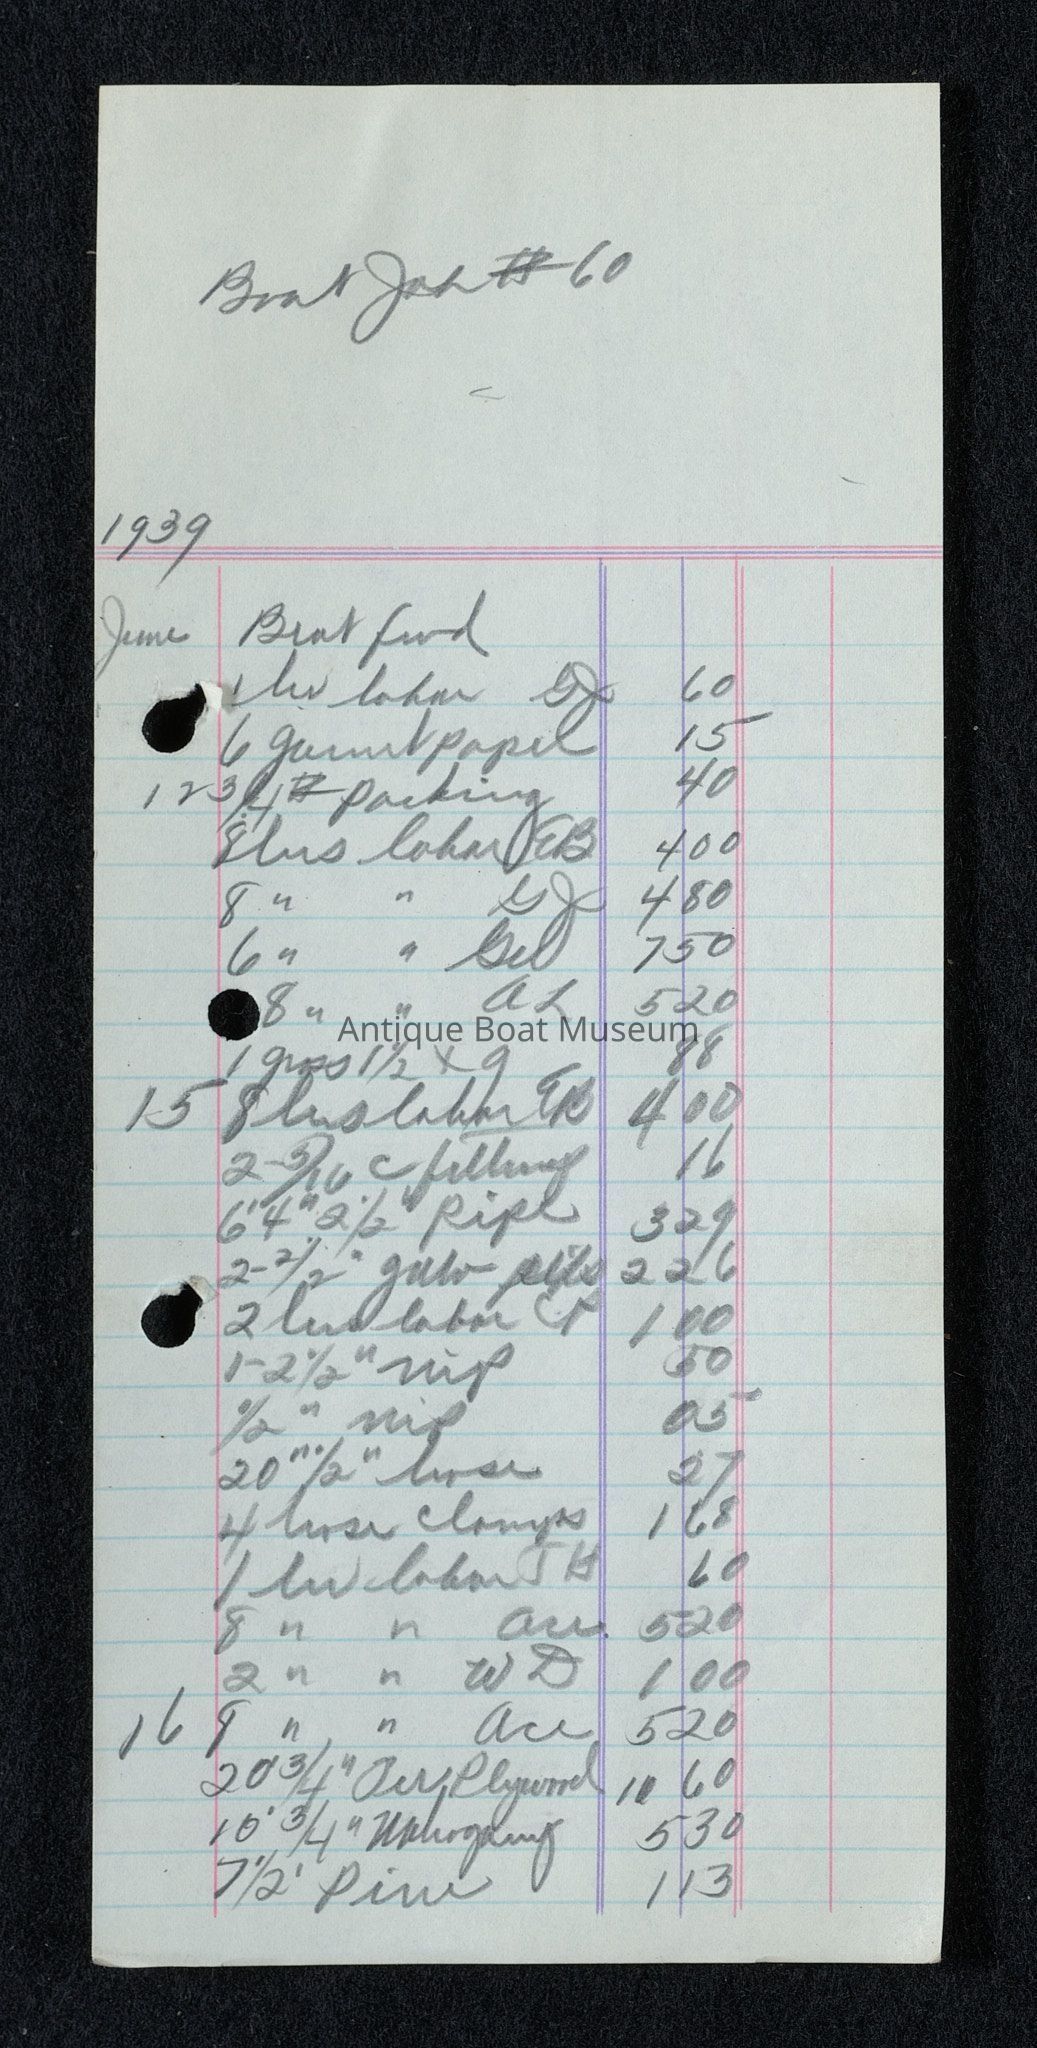 Boat Job # 60
1939
June Boat fwd
1 hr labor GJ 60
6 garnet paper 15
12 3/4 # packing 40
8 hrs labor EB 4 00
8 " " GJ 4 80
6 " " 7 50
8 " " AL 5 20
Antique Boat Museum
1 gross 1 1/2 x 9 88
15 8 hrs labor EB 4 00
2 - 5/16 C fitting 16
6' 4" 2 1/2" Pipe 3 29
2 - 2 1/2" 2 26
2 hrs labor CP 1 00
1 - 2 1/2" nip 50
1/2" nip 05
20" 1 1/2" hose 27
4 hose clamps 1 68
1 hr labor JH 60
8 " " Ace 5 20
2 " " WD 1 00
16 8 " " Ace 5 20
20' 3/4" Plywood 10 60
10' 3/4" Mahogany 5 30
7 1/2' Pine 1 13